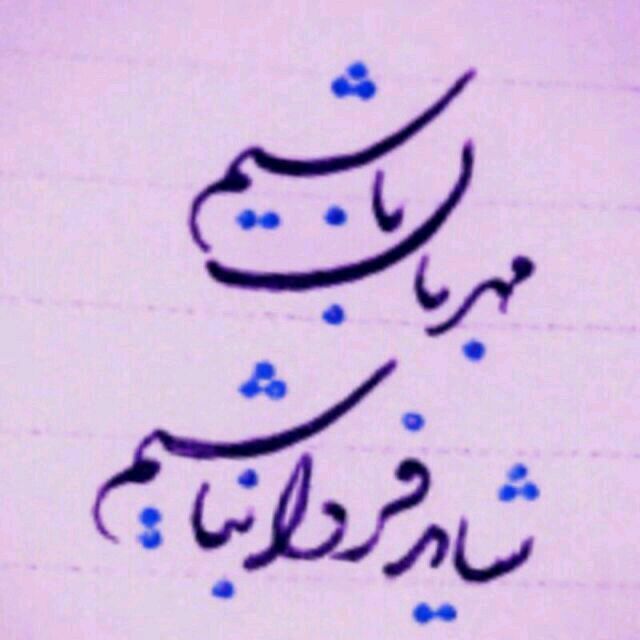 مهربان باشیم
شاید فردا نباشیم